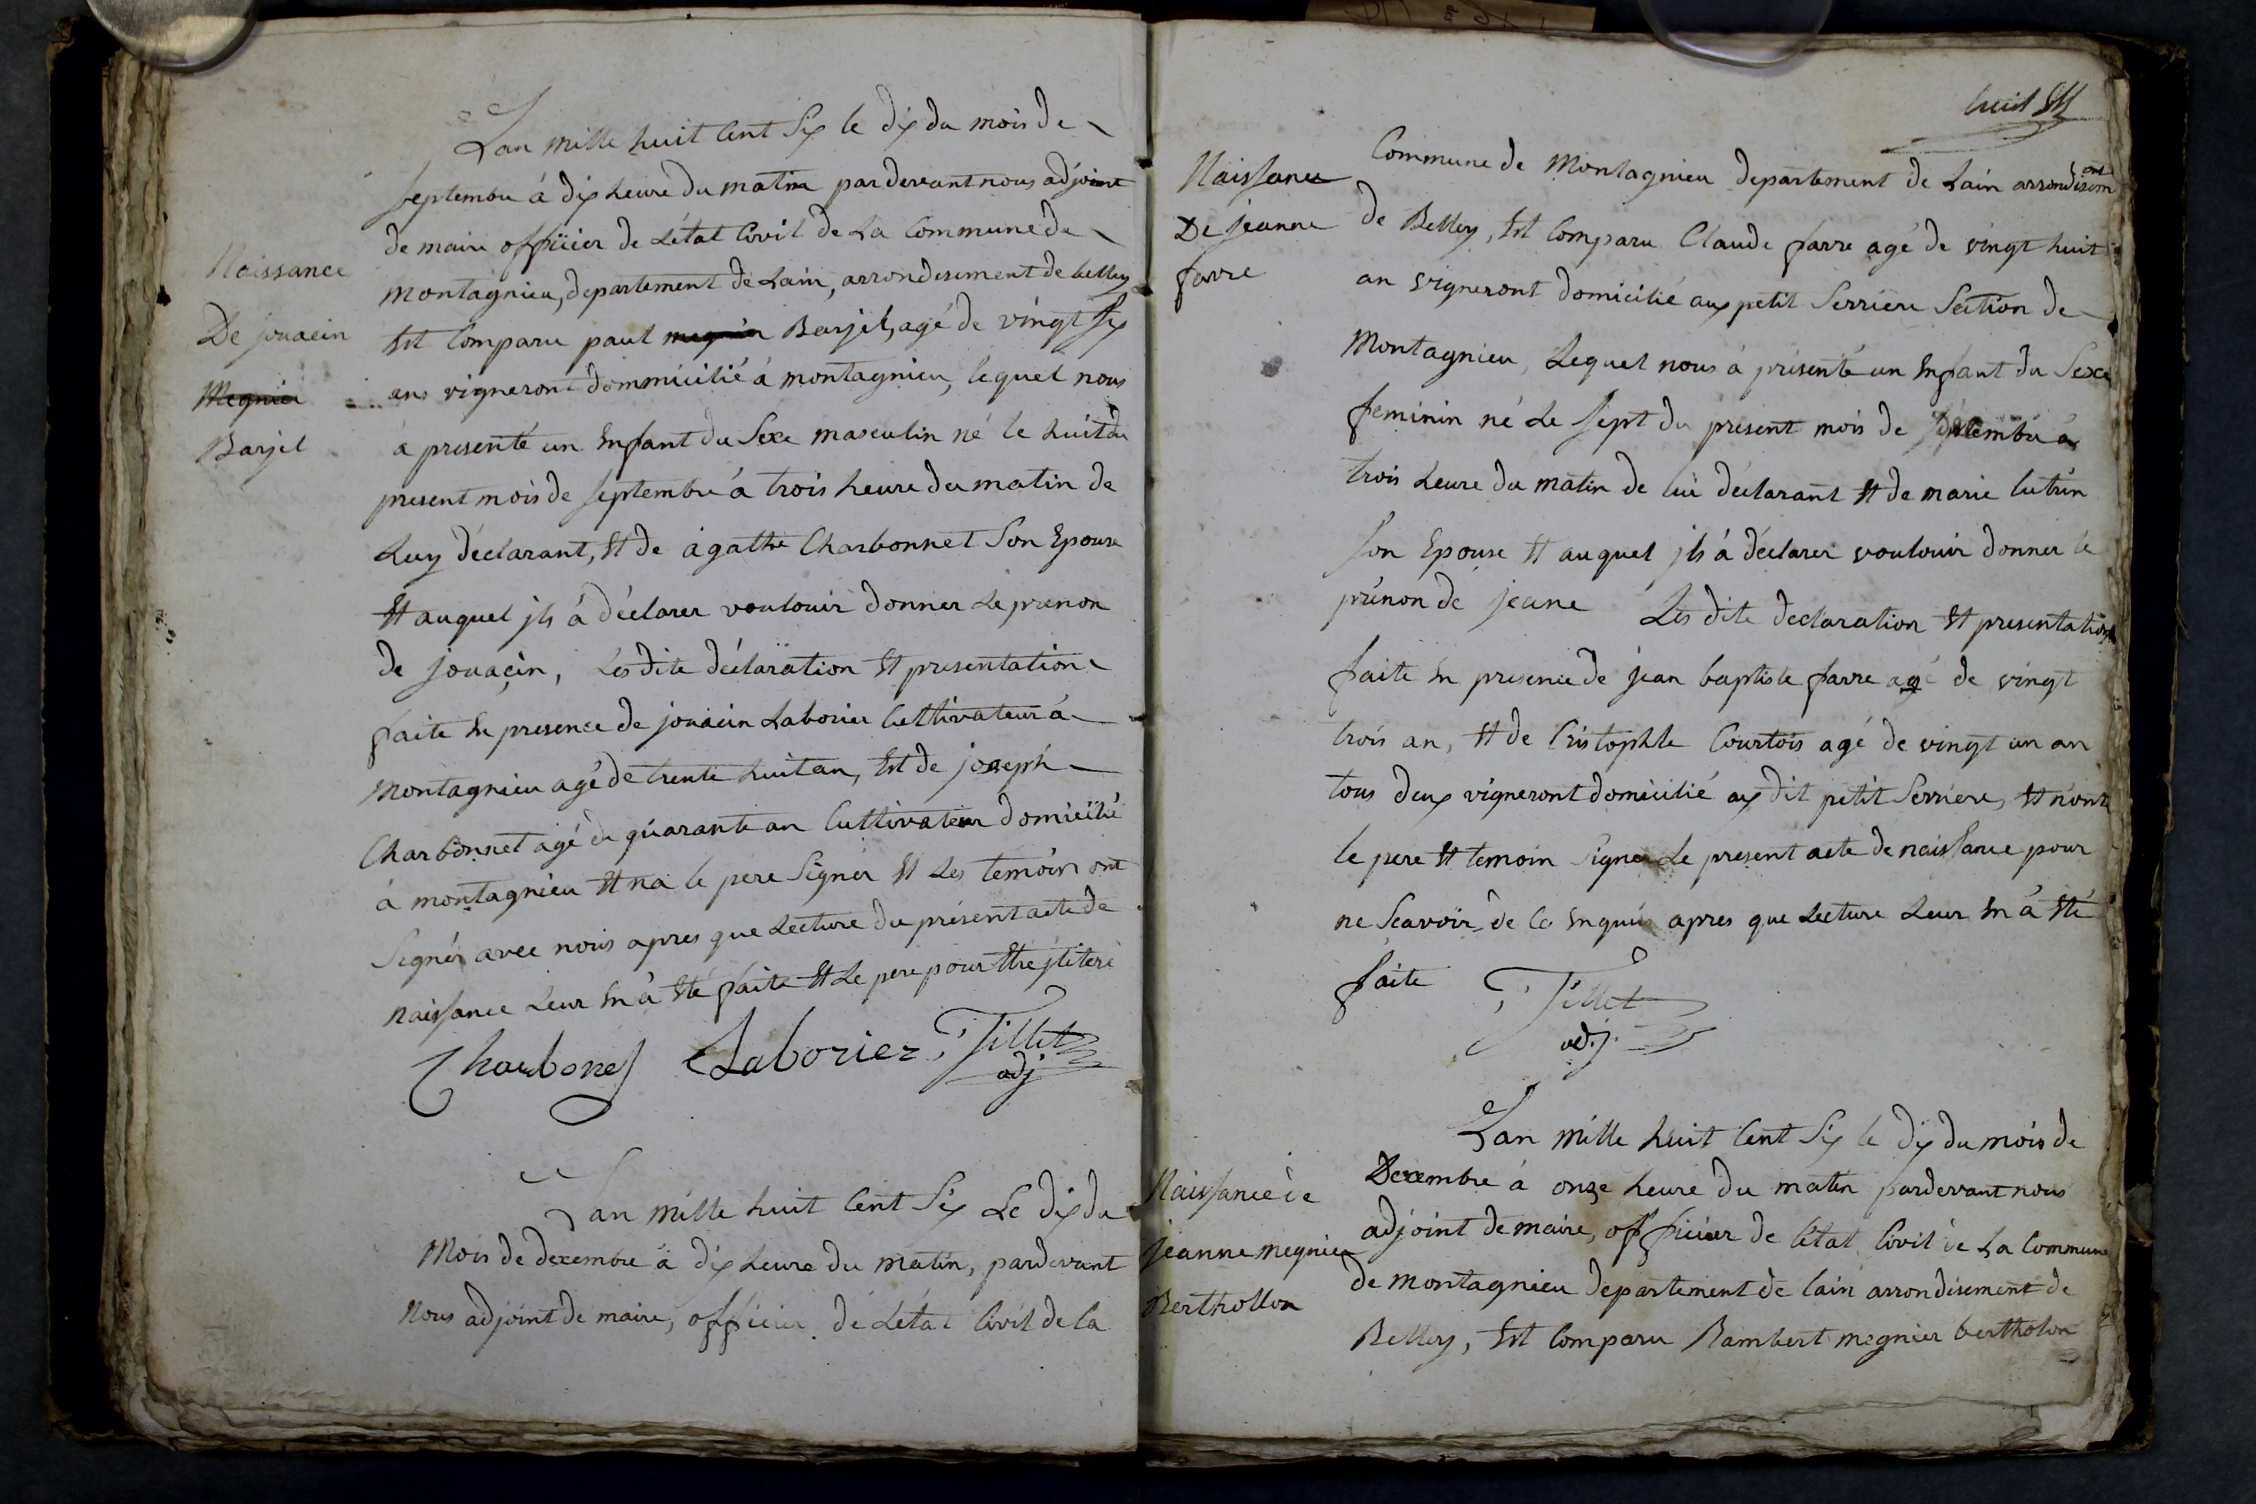 Naissance
De jouacin
Megnier
Barjel
Lan mille huit Cent Six le dix du mois de
septembre à dix heure du matin pardevant nous adjoint
de maire offiicier de Létat Civil de La Commune de
montagnieu, departement de Lain, arrondisement de belley
Est Comparu paul megnier Barjel, agé de vingt six
ans vigneront dommicilié à montagnieu, lequel nous
à presenté un Enfant du Sexe masculin né le huit du
present mois de septembre à trois heure du matin de
Luy déclarant, Et de agathe Charbonnet Son Epouse
Et auquel jls à déclarer voulouir donner Le prenon
de jouacin, Lesdite déclaration Et presentation
faite En presence de jouacin Laborier Cultivateur à
montagnieu agé de trente huit an, Et de joseph
Charbonnet agé de quarante an Cultivateur domicilié
à montagnieu Et na le pere Signér Et Les temoin ont
Signér avec nous apres que Lecture du présent acte de
naissance Leur En à Eté faite Et Le pere pour Etre jlitere
Charbonet Laborier Tillet
adj
Lan mille huit Cent Six Le dix du
Mois de decembre à dix heure du matin, pardevant
Nous adjoint de maire, officier de Létat Civil de la
huit
Naissance
De jeanne
farre
Commune de Montagnieu departement de Lain arrondisement
de Belley, Est Comparu Claude farre agé de vingt huit
an vigneront domicilié aux petit Serriere Section de
Montagnieu, Lequel nous à présenté un Enfant du Sexe
feminin né Le sept du présent mois de à
trois heure du matin de lui déclarant Et de marie lutrin
son Epouse Et auquel jls à déclarer voulouir donner le
prénon de jeane Lesdite declaration Et presentation
faite En presence de jean baptiste farre agé de vingt
trois an, Et de Cristophle Courtois agé de vingt un an
tous deux vigneront domicilié aux dit petit Serriere, Et nont
le pere Et temoin Signer Le present acte de naissance pour
ne Scavoir de Ce Enquis apres que Lecture Leur En à Eté
faite Tillet
adj.
Naissance de
jeanne megnier
Berthollon
Lan mille huit Cent Six le dix du mois de
Decembre à onze heure du matin pardevant nous
adjoint de maire, officier de Létat Civil de La Commune
de montagnieu departement de lain arrondisement de
Belley, Est Comparu Rambert megnier bertholon